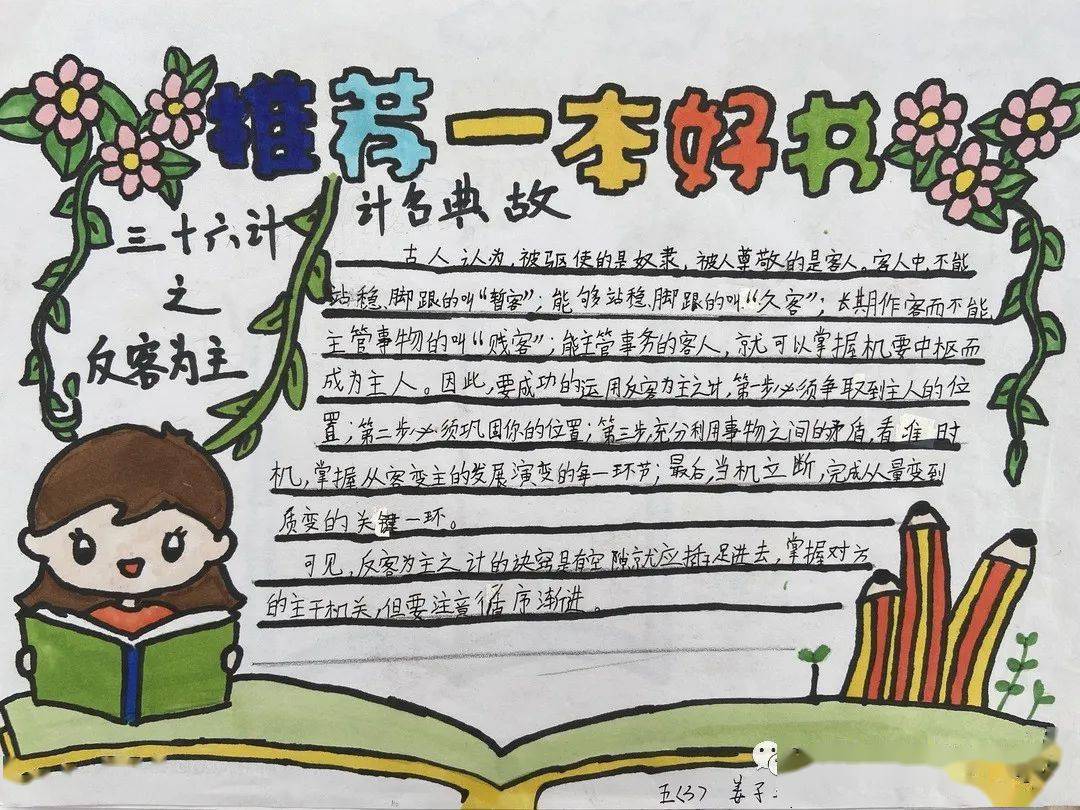 推荐一本好书
三十六计
之
反客为主
计名典故
古人认为,被驱使的是奴隶,被人尊敬的是客人。客人中,不能
站稳脚跟的叫“暂客”;能够站稳脚跟的叫“久客”;长期作客而不能
主管事物的叫“贱客”;能主管事务的客人,就可以掌握机要中枢而
成为主人。因此,要成功的运用反客为主之计,第一步必须争取到主人的位
置;第二步必须巩固你的位置;第三步充分利用事物之间的矛盾,看准时
机,掌握从客变主的发展演变的每一环节;最后,当机立断,完成从量变到
质变的关键一环。
可见,反客为主之计的诀窍是有空隙就应插足进去,掌握对方
的主干机关,但要注意循序渐进。
五(3) 姜子